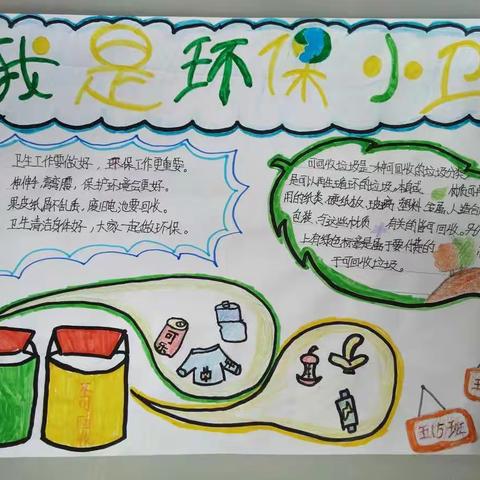 我是环保小卫
卫生工作要做好，环保工作更重要。
伸伸手，弯弯腰，保护环境会更好。
果皮纸屑不乱丢，废旧电池要回收。
卫生清洁身体好，大家一起做环保。
可回收垃圾是一种可回收的垃圾分类
是可以再生循环的垃圾。本身或材质可再
用的纸类、硬纸板、玻璃、塑料、金属、人造合
包装，与这些材质有关的皆可回收。另外
上有绿色标章是属于要付费的
于可回收垃圾。
可乐
不可回收
五(5)班